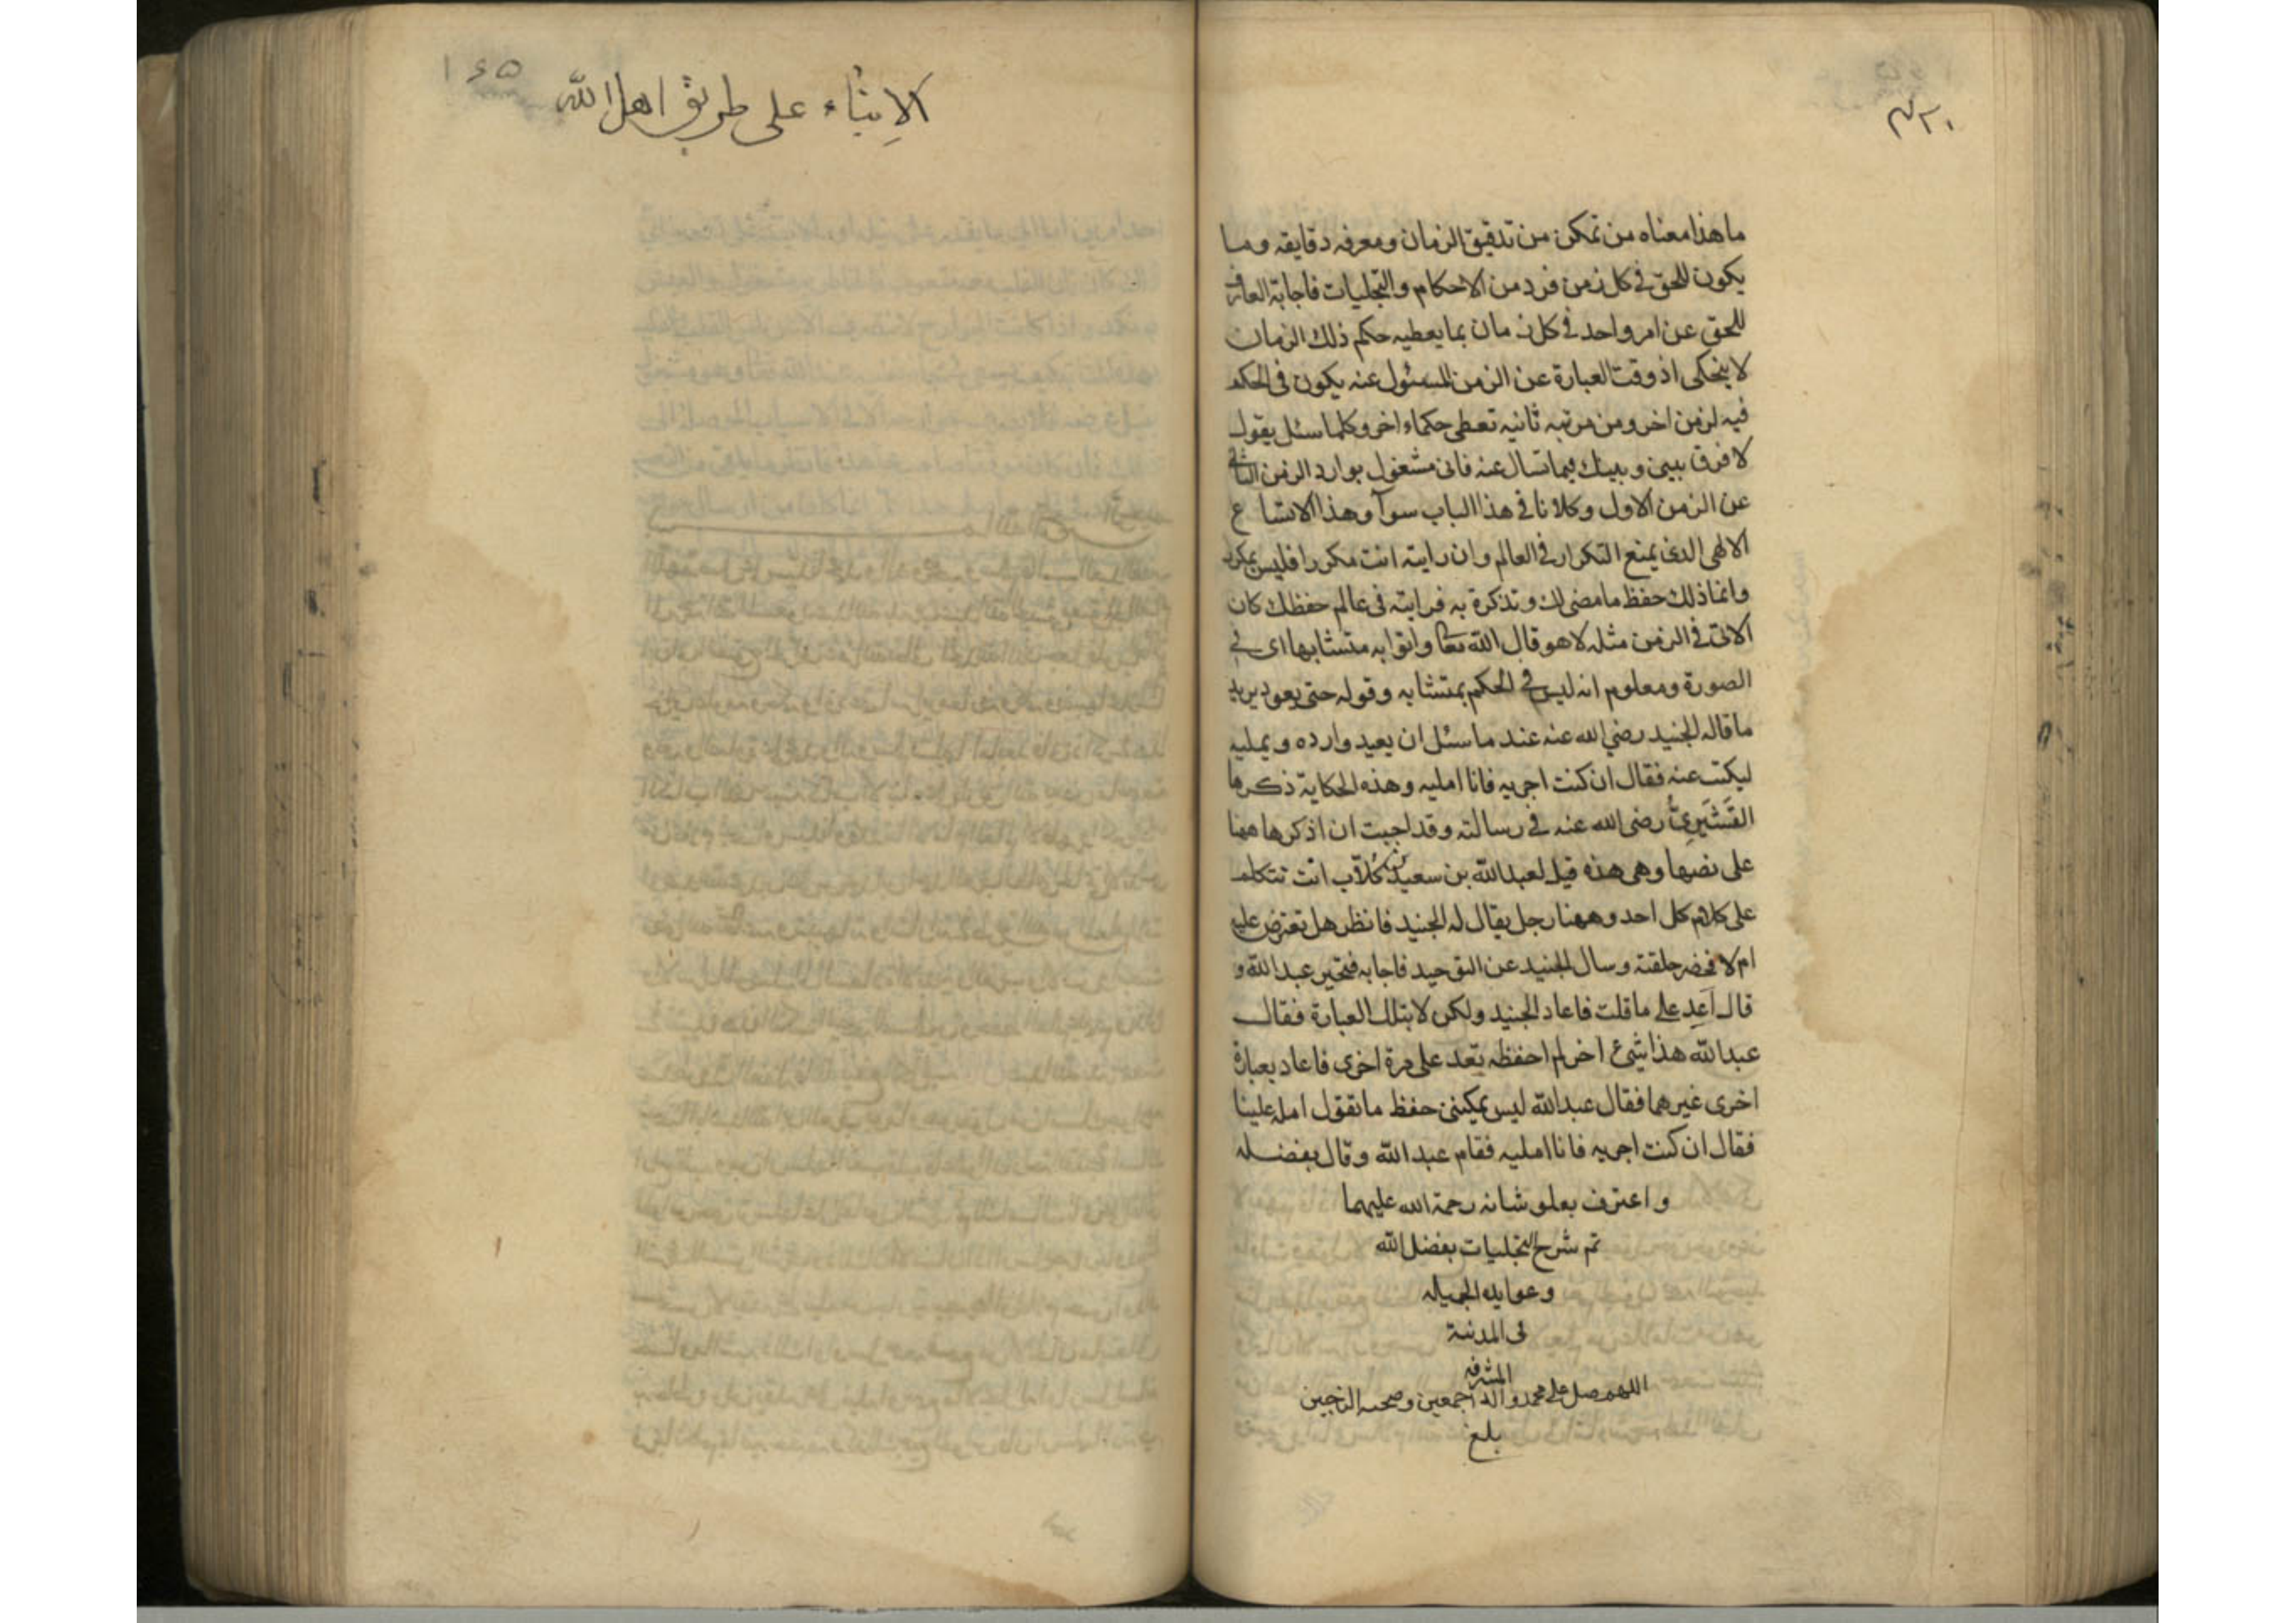 ما هذا معناه من تمكن من تدقيق الزمان ومعرفه دقايقه وما
يكون للحق في كل زمن فرد من الاحكام والتجليات فاجابة العارف
للحق عن امر واحد في كل زمان بما يعطيه حكم ذلك الزمان
لا ينحكي اذ وقت العبارة عن الزمن المسئول عنه يكون في الحكم
فيه لزمن اخر ومن مرتبه ثانيه تعطى حكماء اخر وكلما سئل يقول
لا فرق بيني وبينك فيما تسال عنه فاني مشغول بوارد الزمن الثاني
عن الزمن الاول وكلانا في هذا الباب سوآ وهذا الاتساع
الالهي الذي يمنع التكرار في العالم وان رايته انت مكررا فليس بمكرر
وانما ذلك حفظ ما مضى لك وتذكرة به فرايته في عالم حفظك كان
الاتي في الزمن مثله لا هو قال الله تعا واتوا به متشابها اي في
الصورة ومعلوم انه ليس في الحكم بمتشابه وقوله حتى يعود يريد
ما قاله الجنيد رضي الله عنه عند ما سئل ان يعيد وارده ويمليه
ليكتب عنه فقال ان كنت اجريه فانا امليه وهذه الحكاية ذكرها
القشيريّ رضى الله عنه في رسالته وقد احببت ان اذكرها ههنا
على نصها وهى هذه قيل لعبد الله بن سعيد بن كلاّب انت تتكلم
على كلام كل احد وههنا رجل يقال له الجنيد فانظر هل تعترض عليه
ام لا فحضر حلقته وسال الجنيد عن التوحيد فاجابه فتحير عبد الله و
قال اَعِد على ما قلت فاعاد الجنيد ولكن لا بتلك العبارة فقال
عبد الله هذا شيئ اخر لم احفظه تعد على مرة اخرى فاعاد بعبارة
اخرى غيرهما فقال عبد الله ليس يمكننى حفظ ما تقول امله علينا
فقال ان كنت اجريه فانا امليه فقام عبد الله وقال بفضله
واعترف بعلو شانه رحمة الله عليهما
تم شرح التجليات بفضل الله
وعوايده الجميله
في المدنية
المشرفه
اللهم صل على محمد واله اجمعين وصحبه
بلغ
١٤٥
الإنبآء على طريق اهل الله